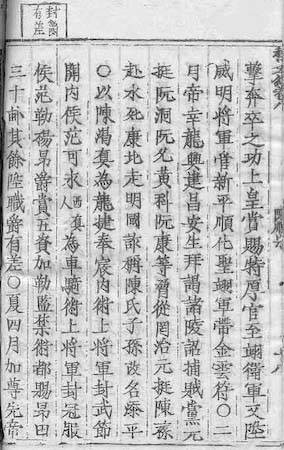 封賞
有差
擊奔卒之功上皇賞賜特厚官至翊衛軍又陞
威明將軍管新平順化聖翊軍帶金雲符○二
月帝幸龍興建昌安生拜謁諸陵詔捕賊黨元
挺阮洞阮允黃科阮康等脅從罔治元挺陳孫
赴水死康北走明國詐稱陳氏子孫改名添平
○以陳渴真為龍捷奉宸内衛上將軍封武節
關内侯范可求西真人為車騎衛上將軍封冠服
侯范勒楊昂爵賞五資加勒監禁衛都賜昂田
三十畝其餘陞職爵有差○夏四月加尊先帝